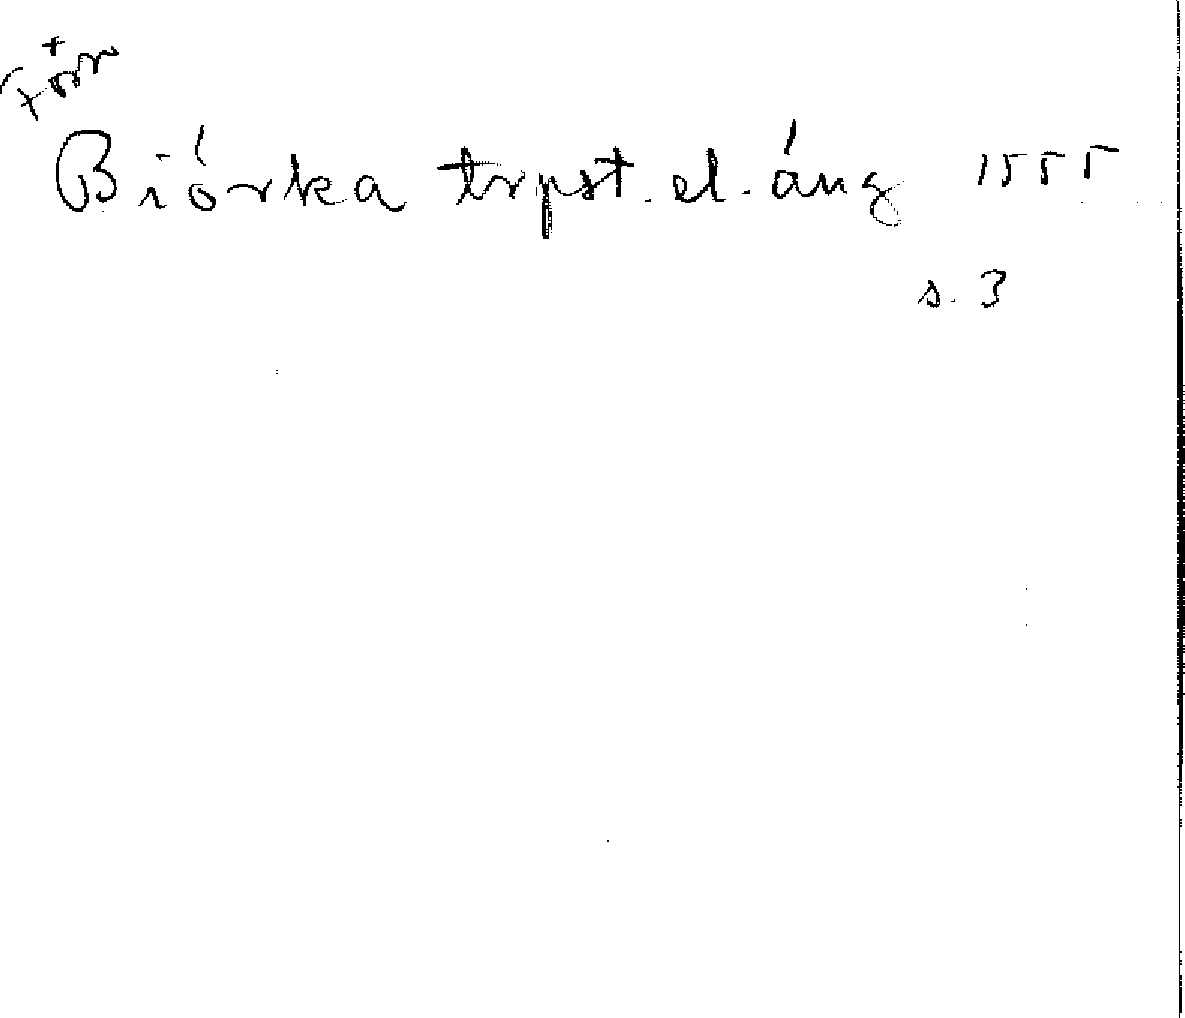 Förr
Biórka trpst. el. áng 1555
s. 3